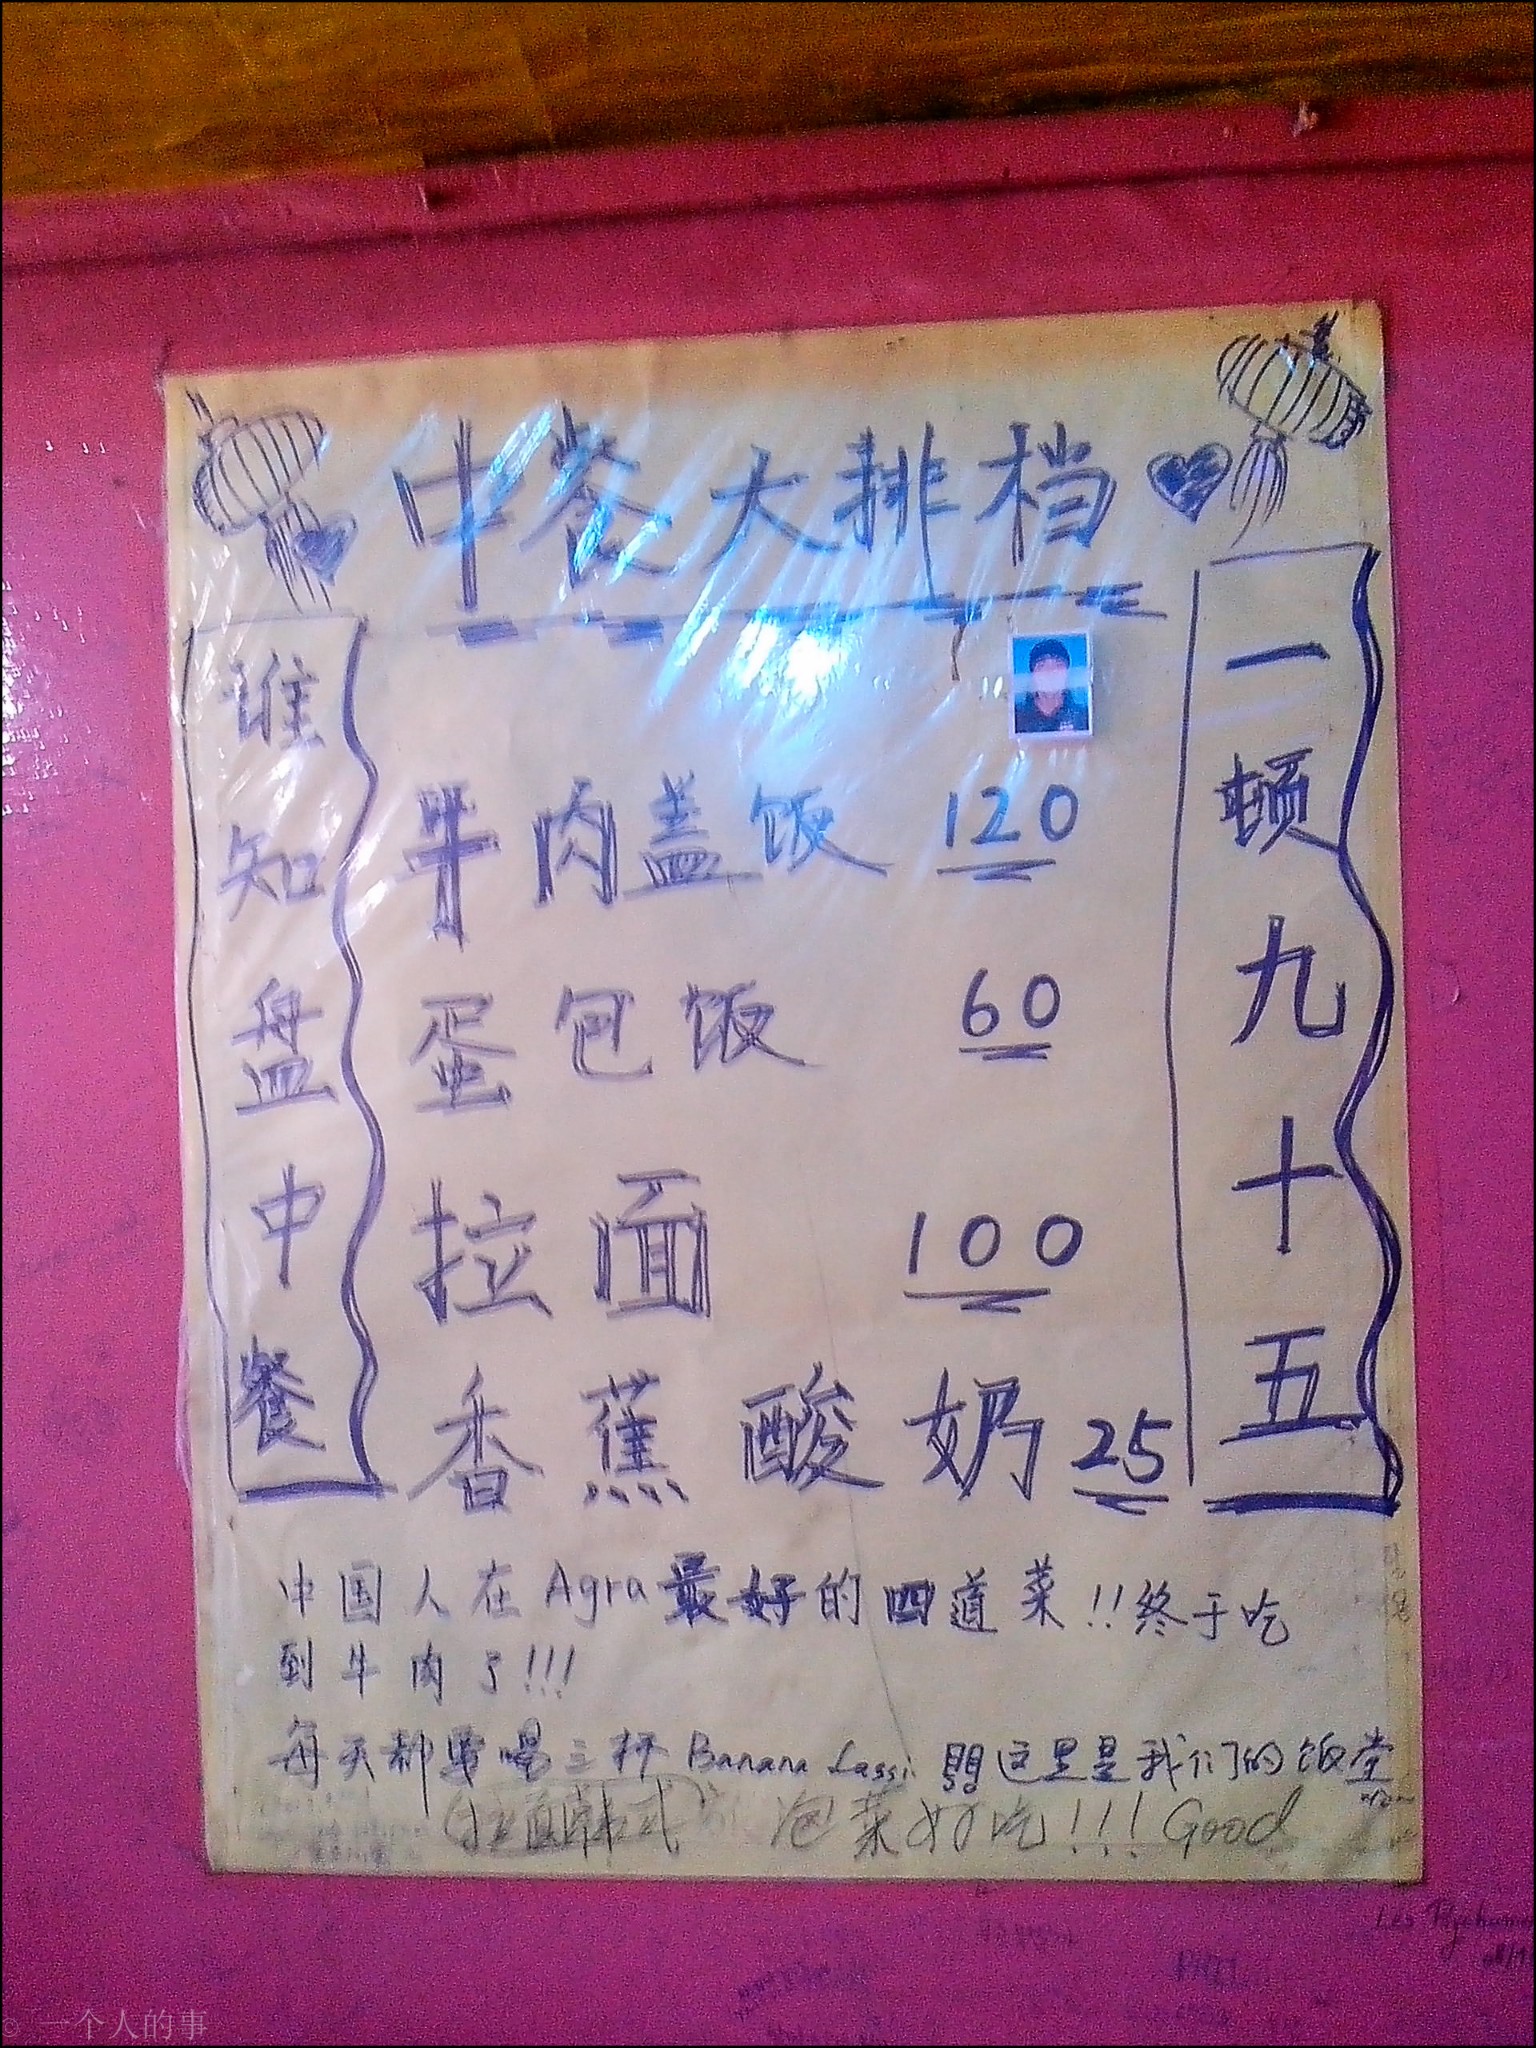 中餐大排档
谁知盘中餐
一顿九十五
牛肉盖饭 120
蛋包饭 60
拉面 100
香蕉酸奶 25
中国人在Agra最好的四道菜!!终于吃
到牛肉了!!!
每天都要喝三杯Banana Lassi 这里是我们的饭堂
泡菜好吃!!! Good
PHIL
© 一个人的事